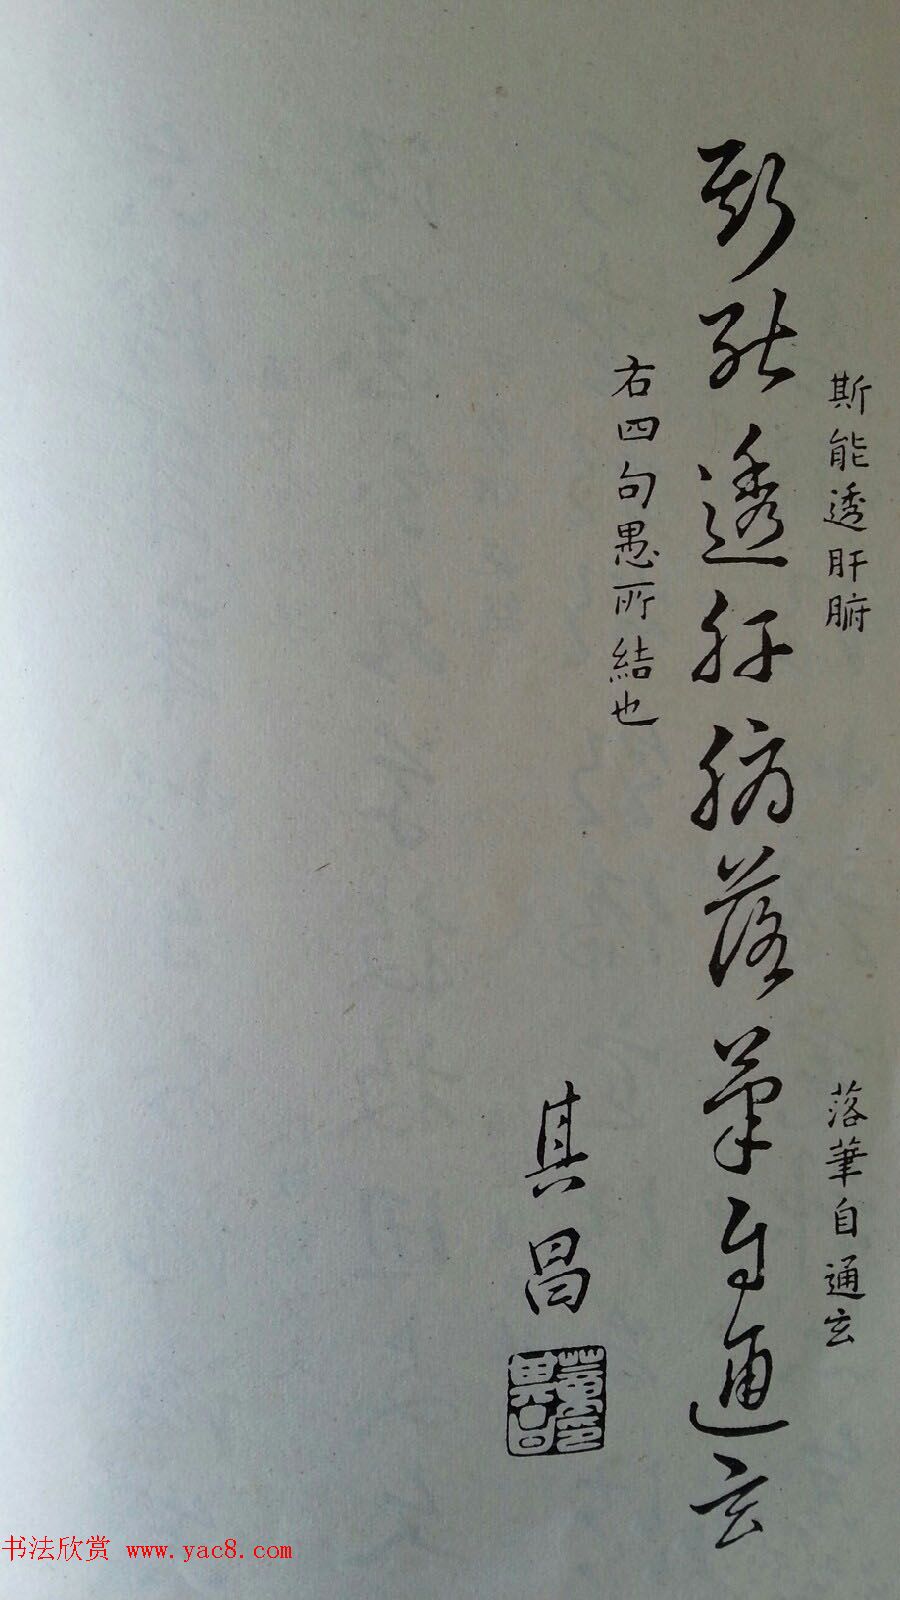 斯能透肝腑
落筆自通玄
斯能透肝腑落筆自通玄
右四句愚所結也
其昌
书法欣赏 www.yac8.com